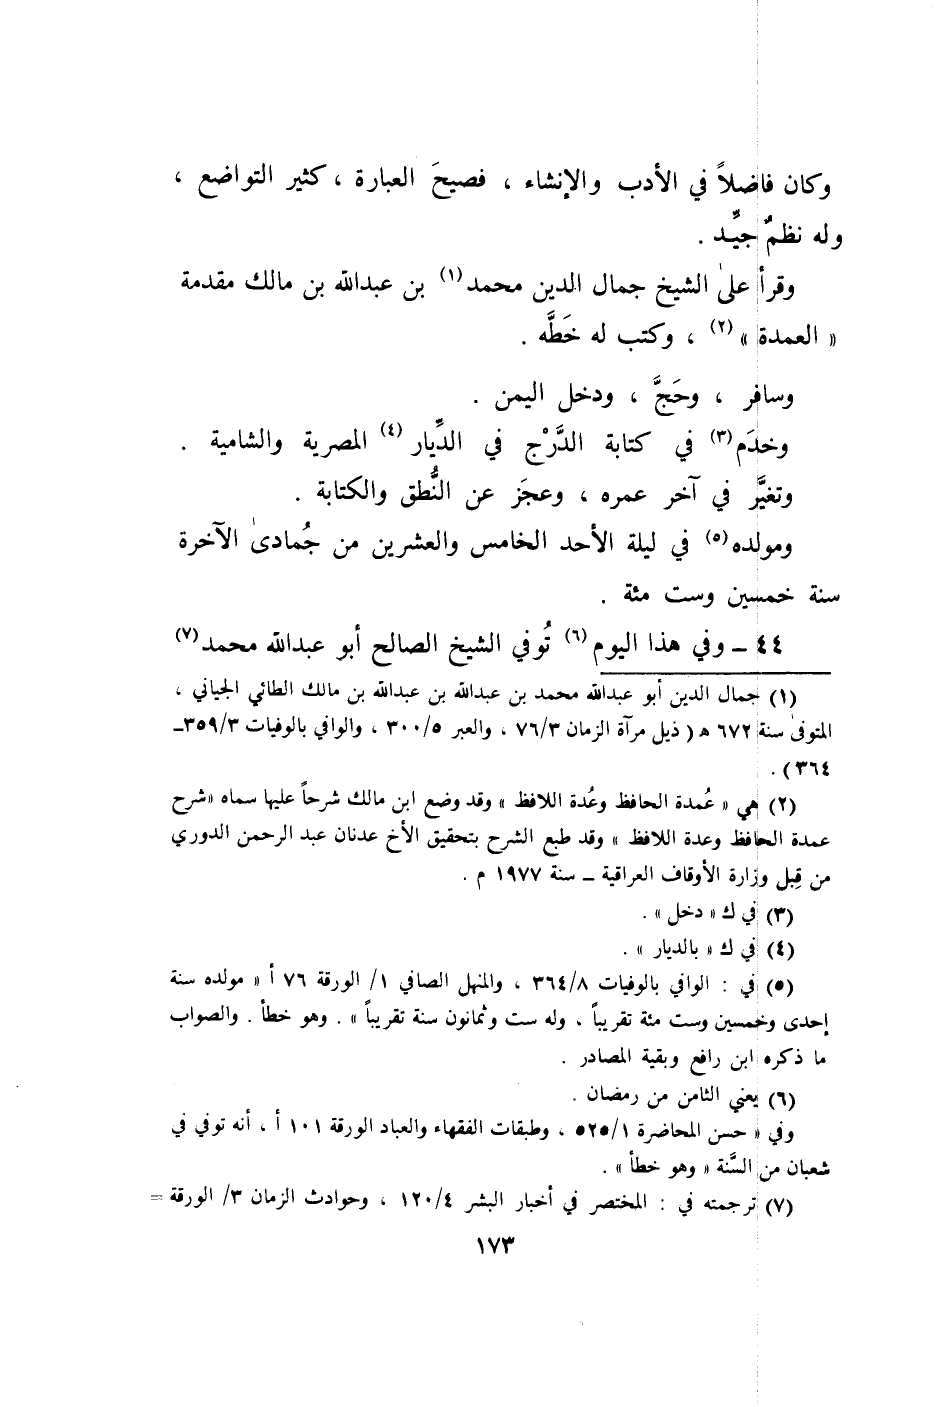 وكان فاضلاً في الأدب والإنشاء ، فصيحَ العبارة ، كثير التواضع ،
وله نظمٌ جيِّد .
وقرأ علىٰ الشيخ جمال الدين محمد(١) بن عبدالله بن مالك مقدمة
« العمدة »(٢) ، وكتب له خَطَّه .
وسافر ، وحَجَّ ، ودخل اليمن .
وخدَم(٣) في كتابة الدَّرْج في الدِّيار(٤) المصرية والشامية .
وتغيَّر في آخر عمره ، وعجَز عن النُّطق والكتابة .
ومولده(٥) في ليلة الأحد الخامس والعشرين من جُمادىٰ الآخرة
سنة خمسين وست مئة .
٤٤ ـ وفي هذا اليوم(٦) تُوفي الشيخ الصالح أبو عبدالله محمد(٧)
(١) جمال الدين أبو عبدالله محمد بن عبدالله بن عبدالله بن مالك الطائي الجياني ،
المتوفىٰ سنة ٦٧٢ ه ( ذيل مرآة الزمان ٧٦/٣ ، والعبر ٣٠٠/٥ ، والوافي بالوفيات ٣٥٩/٣ـ
٣٦٤) .
(٢) هي « عُمدة الحافظ وعُدة اللافظ » وقد وضع ابن مالك شرحاً عليها سماه «شرح
عمدة الحافظ وعدة اللافظ » وقد طبع الشرح بتحقيق الأخ عدنان عبد الرحمن الدوري
من قِبل وزارة الأوقاف العراقية ـ سنة ١٩٧٧ م .
(٣) في ك « دخل » .
(٤) في ك « بالديار » .
(٥) في : الوافي بالوفيات ٣٦٤/٨ ، والمنهل الصافي ١/ الورقة ٧٦ أ « مولده سنة
إحدى وخمسين وست مئة تقريباً ، وله ست وثمانون سنة تقريباً » . وهو خطأ . والصواب
ما ذكره ابن رافع وبقية المصادر .
(٦) يعني الثامن من رمضان .
وفي « حسن المحاضرة ٥٢٥/١ ، وطبقات الفقهاء والعباد الورقة ١٠١ أ ، أنه توفي في
شعبان من السَّنة « وهو خطأ » .
(٧) ترجمته في : المختصر في أخبار البشر ١٢٠/٤ ، وحوادث الزمان ٣/ الورقة =
١٧٣